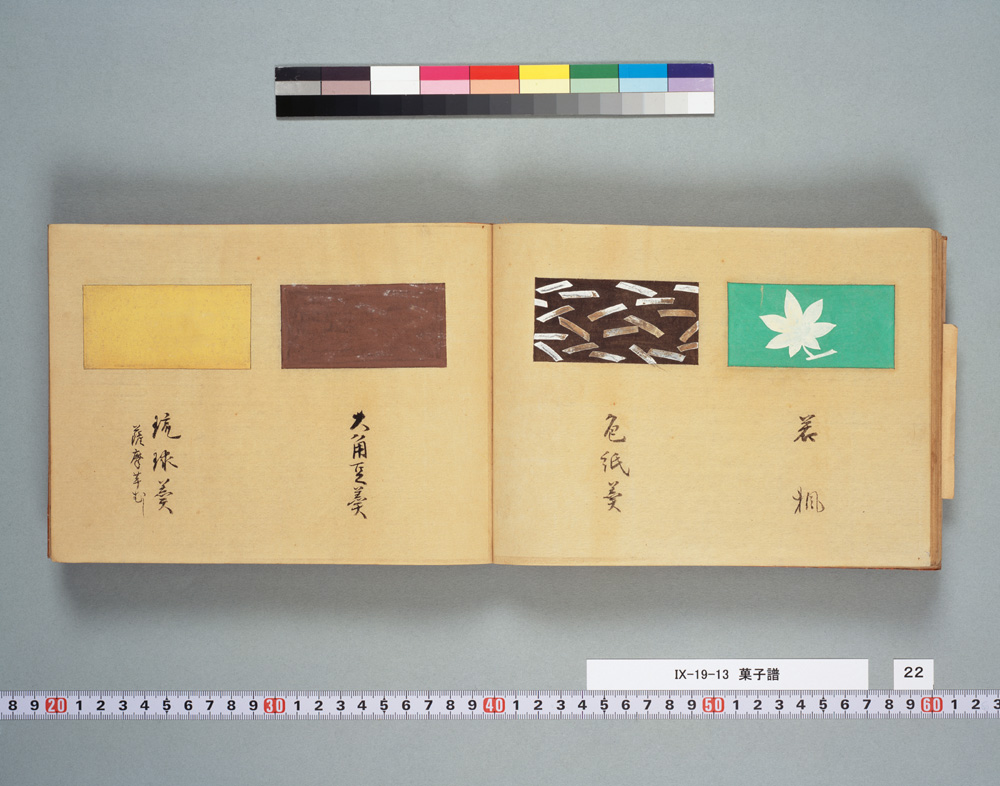 若楓
色紙羹
大角豆羹
琉球羹
薩摩芋
IX-19-13 菓子譜
22
8 9 20 1 2 3 4 5 6 7 8 9 30 1 2 3 4 5 6 7 8 9 40 1 2 3 4 5 6 7 8 9 50 1 2 3 4 5 6 7 8 9 60 1 2 3